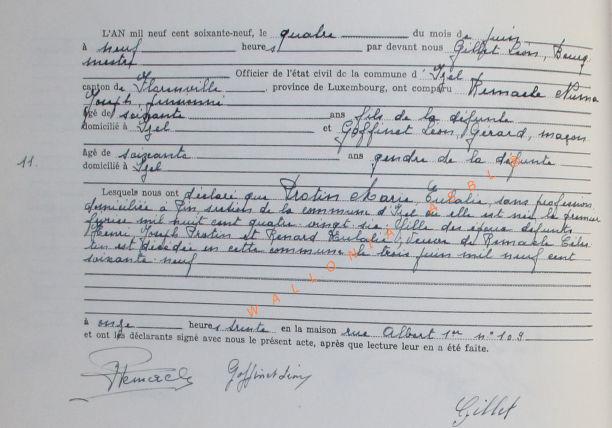 L'AN mil neuf cent soixante-neuf, le quatre du mois de juin
à neuf heures par devant nous Gillet Léon, Bourg
mestre
Officier de l'état civil de la commune d'Izel
canton de Florenville, province de Luxembourg, ont comparu Remacle Numa
Joseph,
âgé de soixante ans fils de la défunte
domicilié à Izel et Goffinet Léon, Gérard, maçon
âgé de soixante ans gendre de la défunte
11. domicilié à Izel
Lesquels nous ont déclaré que Protin Marie, Eulalie, sans profession
domiciliée à Pin, section de la commune d'Izel où elle est née le premier
mil huit cent quatre-vingt-six, fille des époux défunts
Henri Joseph Protin et Renard Eulalie, veuve de Remacle
est décédée en cette commune le trois juin mil neuf cent
soixante-neuf
WALLONIA ASBL
à onze heures trente en la maison rue Albert 1er n° 109
et ont les déclarants signé avec nous le présent acte, après que lecture leur en a été faite.
Remacle Goffinet Léon
Gillet